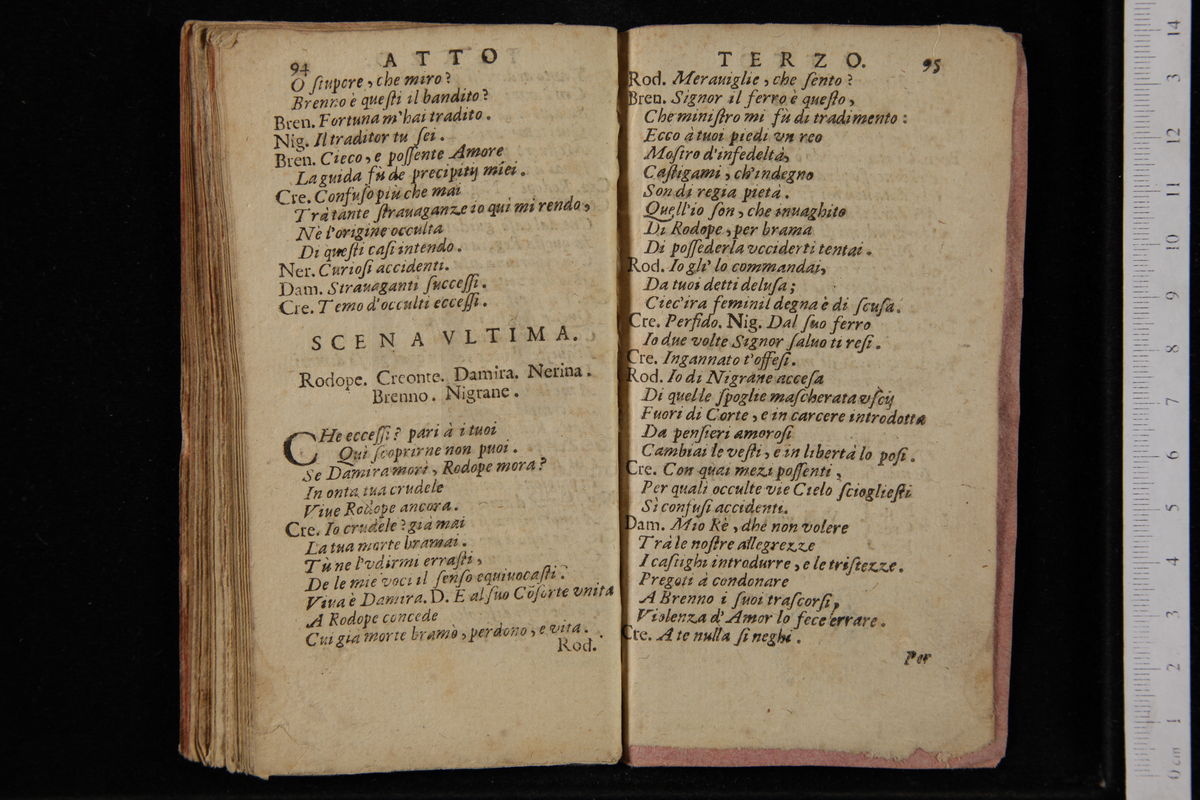 94 ATTO
O ſtupore, che miro?
Brenno è queſti il bandito?
Bren. Fortuna m'hai tradito.
Nig. Il traditor tu ſei.
Bren. Cieco, e poſſente Amore
La guida fù de precipitij miei.
Cre. Confuſo più che mai
Trà tante ſtrauaganze io qui mi rendo,
Nè l'origine occulta
Di queſti caſi intendo.
Ner. Curioſi accidenti.
Dam. Strauaganti ſucceſſi.
Cre. Temo d'occulti ecceſſi.
SCENA VLTIMA.
Rodope. Creonte. Damira. Nerina.
Brenno. Nigrane.
CHe ecceſſi? pari à i tuoi
Qui ſcoprirne non puoi.
Se Damira morì, Rodope mora?
In onta tua crudele
Viue Rodope ancora.
Cre. Io crudele? già mai
La tua morte bramai.
Tù ne l'vdirmi erraſti,
De le mie voci il ſenſo equiuocaſti.
Viua è Damira. D. E al ſuo Cõſorte vnita
A Rodope concede
Cui già morte bramò, perdono, e vita.
Rod.
TERZO. 95
Rod. Merauiglie, che ſento?
Bren. Signor il ferro è queſto,
Che miniſtro mi fù di tradimento:
Ecco à tuoi piedi vn reo
Moſtro d'infedeltà,
Caſtigami, ch'indegno
Son di regia pietà.
Quell'io ſon, che inuaghito
Di Rodope, per brama
Di poſſederla vcciderti tentai.
Rod. Io gli' lo commandai,
Da tuoi detti deluſa;
Ciec'ira feminil degna è di ſcuſa.
Cre. Perfido. Nig. Dal ſuo ferro
Io due volte Signor ſaluo ti reſi.
Cre. Ingannato t'offeſi.
Rod. Io di Nigrane acceſa
Di quelle ſpoglie maſcherata vſcij
Fuori di Corte, e in carcere introdotta
Da penſieri amoroſi
Cambiai le veſti, e in libertà lo poſi.
Cre. Con quai mezi poſſenti,
Per quali occulte vie Cielo ſcioglieſti
Sì confuſi accidenti.
Dam. Mio Rè, dhe non volere
Trà le noſtre allegrezze
I caſtighi introdurre, e le triſtezze.
Pregoti à condonare
A Brenno i ſuoi traſcorſi,
Violenza d'Amor lo fece errare.
Cre. A te nulla ſi neghi.
Per
0 cm 1 2 3 4 5 6 7 8 9 10 11 12 3 14